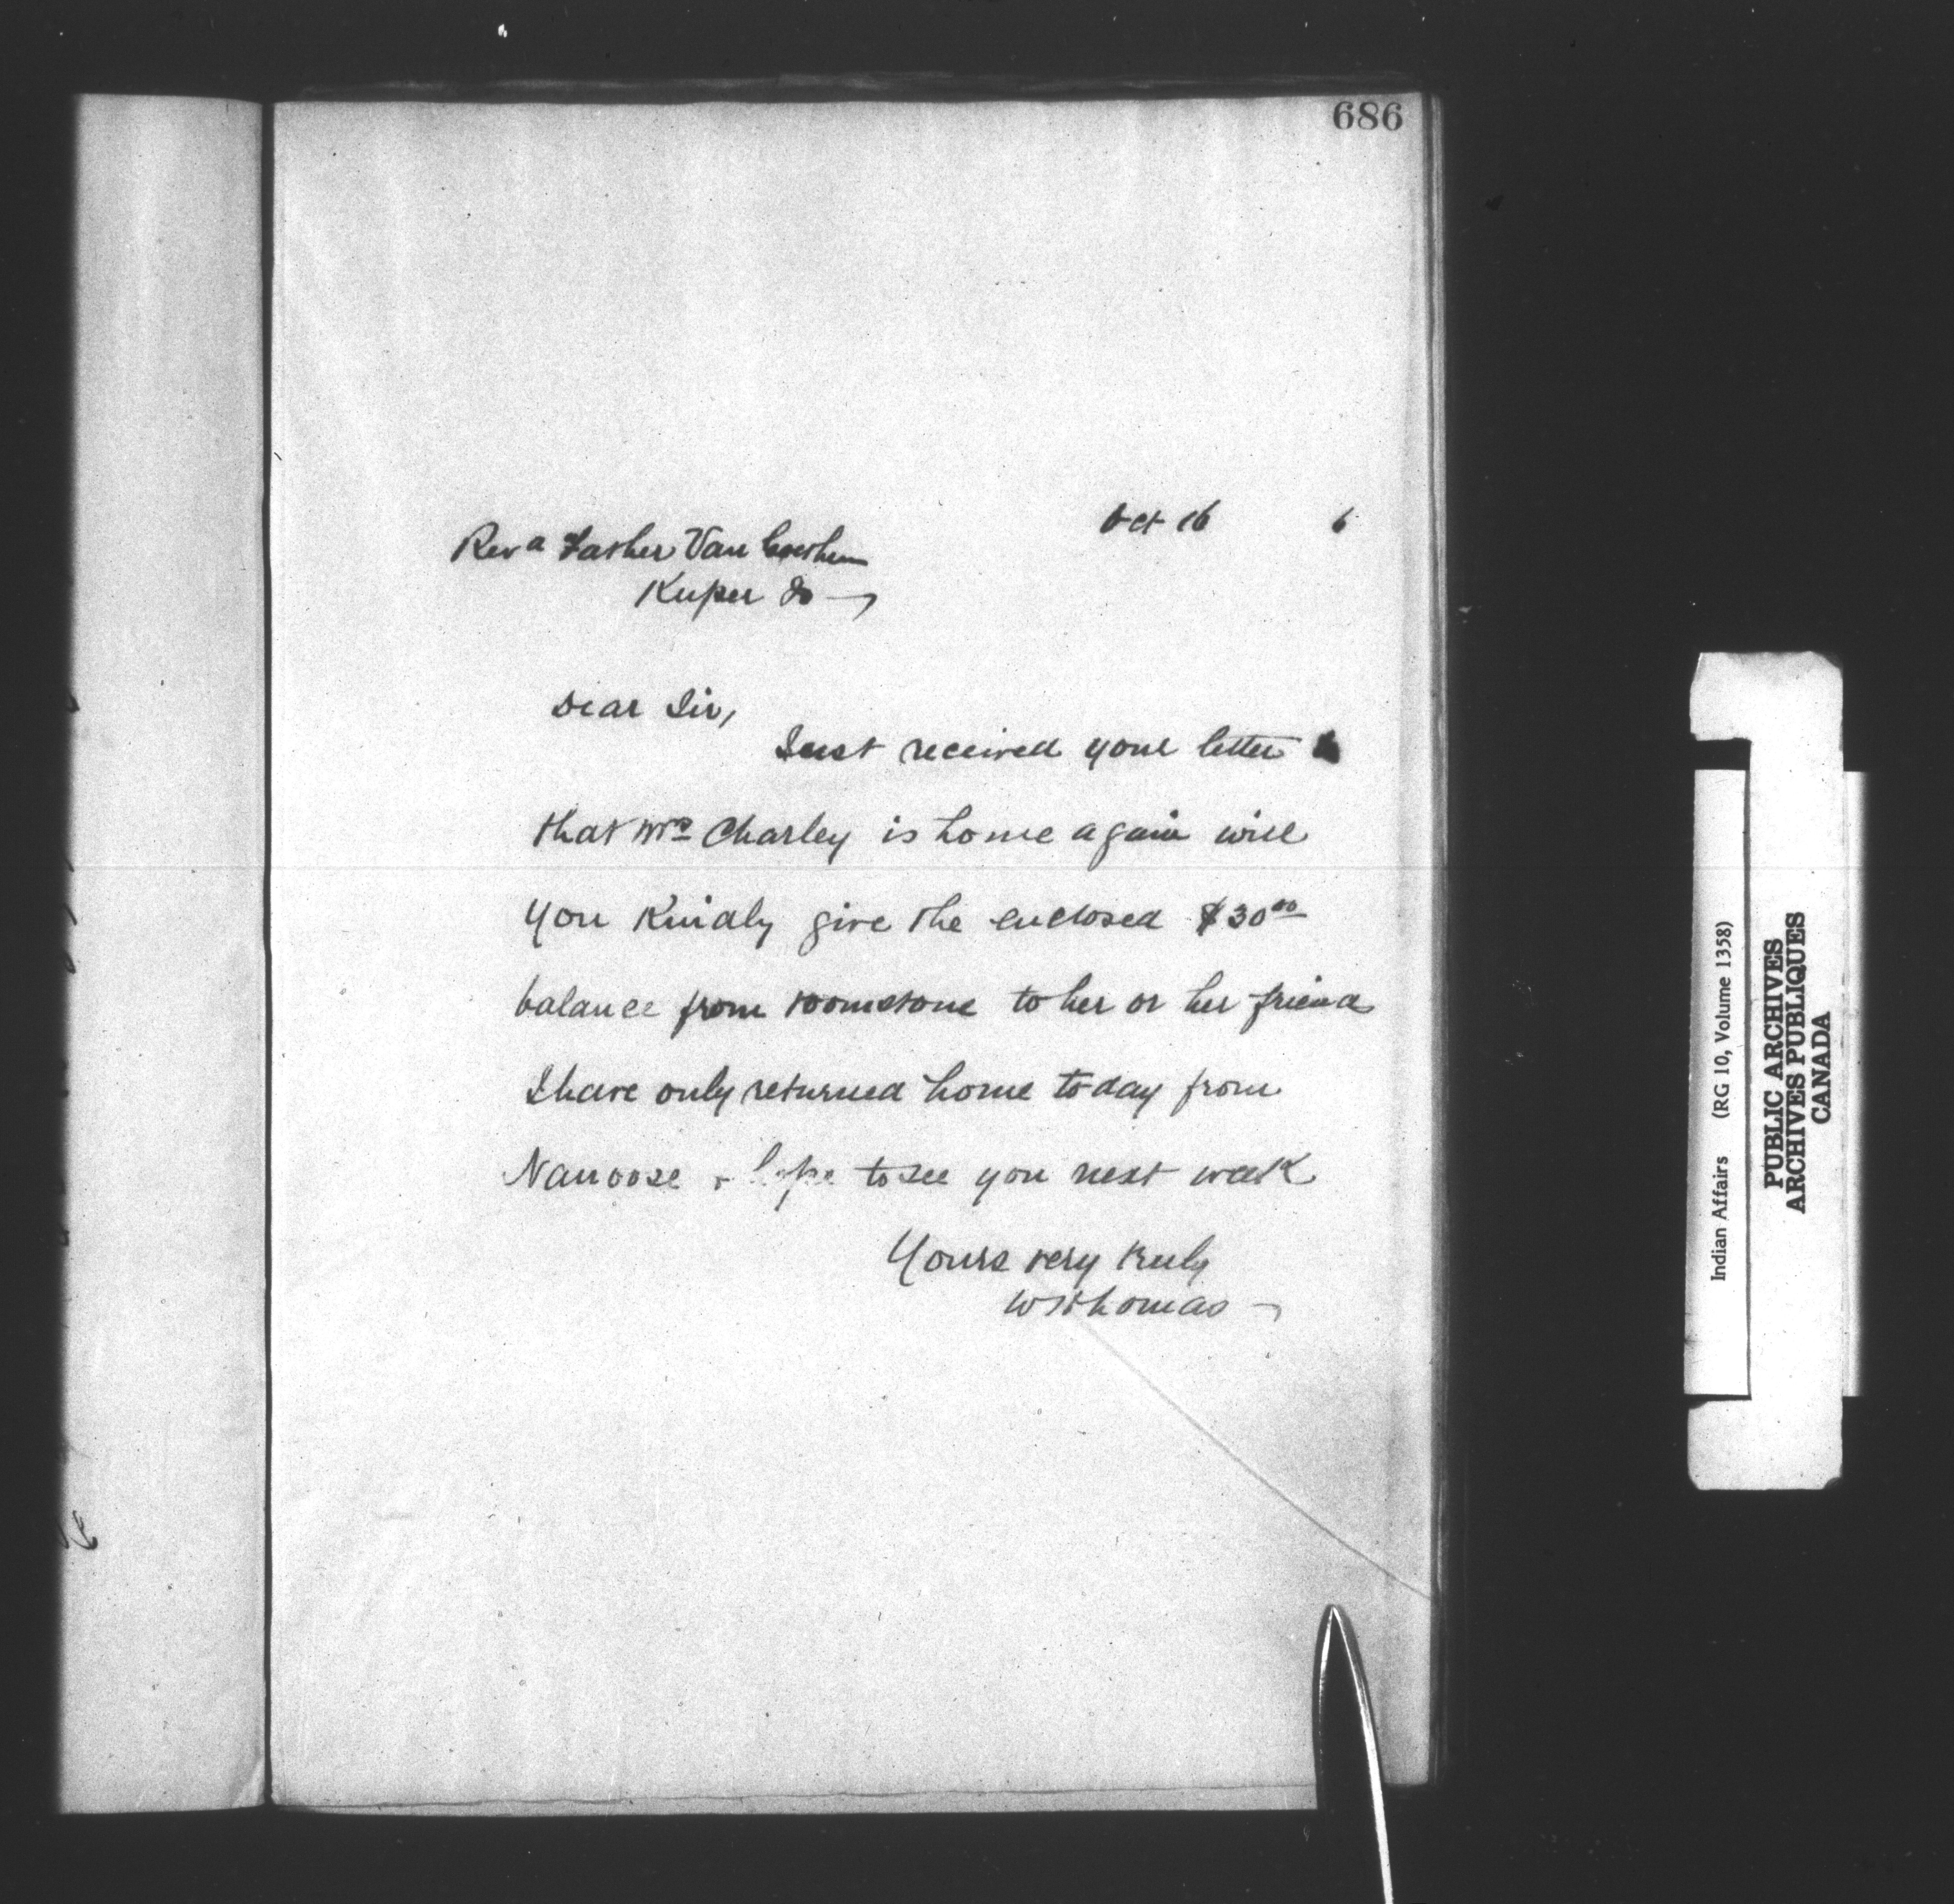 686
Oct 16 6
Revd Father Van
Kuper Is
Dear Sir,
Just received your letter
that Mrs Charley is home again will
you Kindly give the enclosed $30.00
balance from toomstone to her or her friend
I have only returned home to day from
Nanoose & hope to see you next week
Yours very truly
WRThomas
Indian Affairs (RG 10, Volume 1358)
PUBLIC ARCHIVES
ARCHIVES PUBLIQUES
CANADA